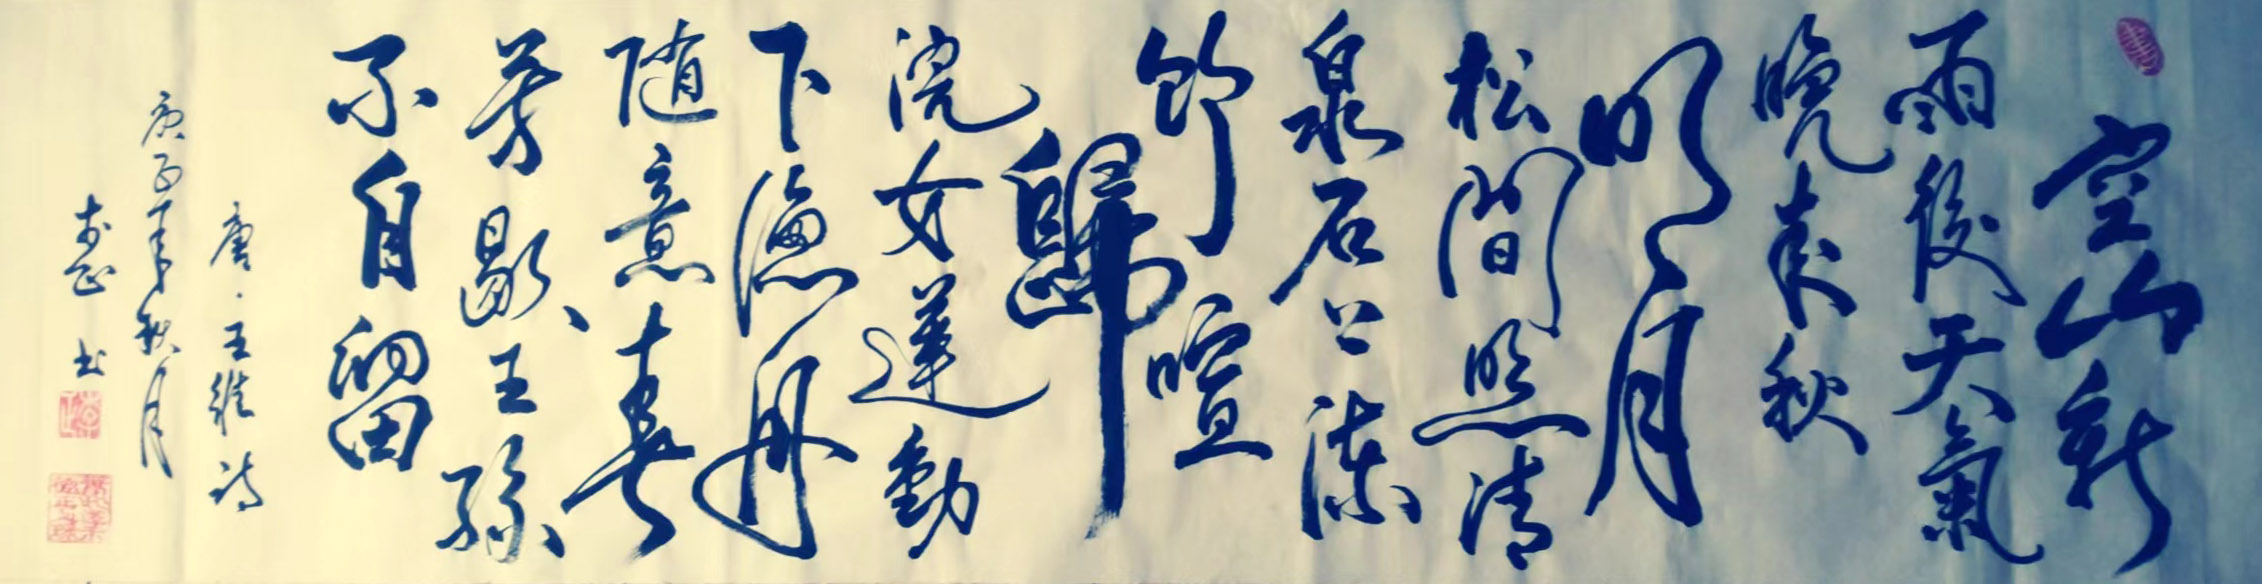 空山新
雨後天氣
晚来秋
明月
松間照清
泉石上流
竹喧
歸
浣女蓮動
下漁舟
随意春
芳歇王孫
不自留
唐·王維诗
庚子年秋月
志正书